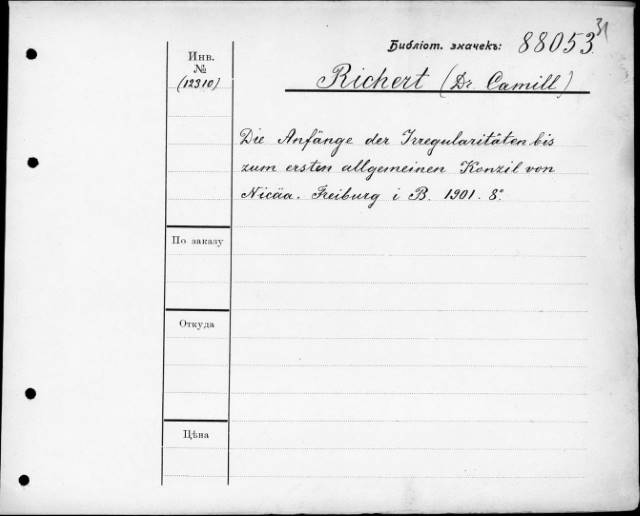 31
Библіот. значекъ: 88053
Инв.
№
(12310)
Richert (Dr Camill)
Die Anfänge der Irregularitäten bis
zum ersten allgemeinen Konzil von
Nicäa. Freiburg i B. 1901. 8º
По заказу
Откуда
Цѣна